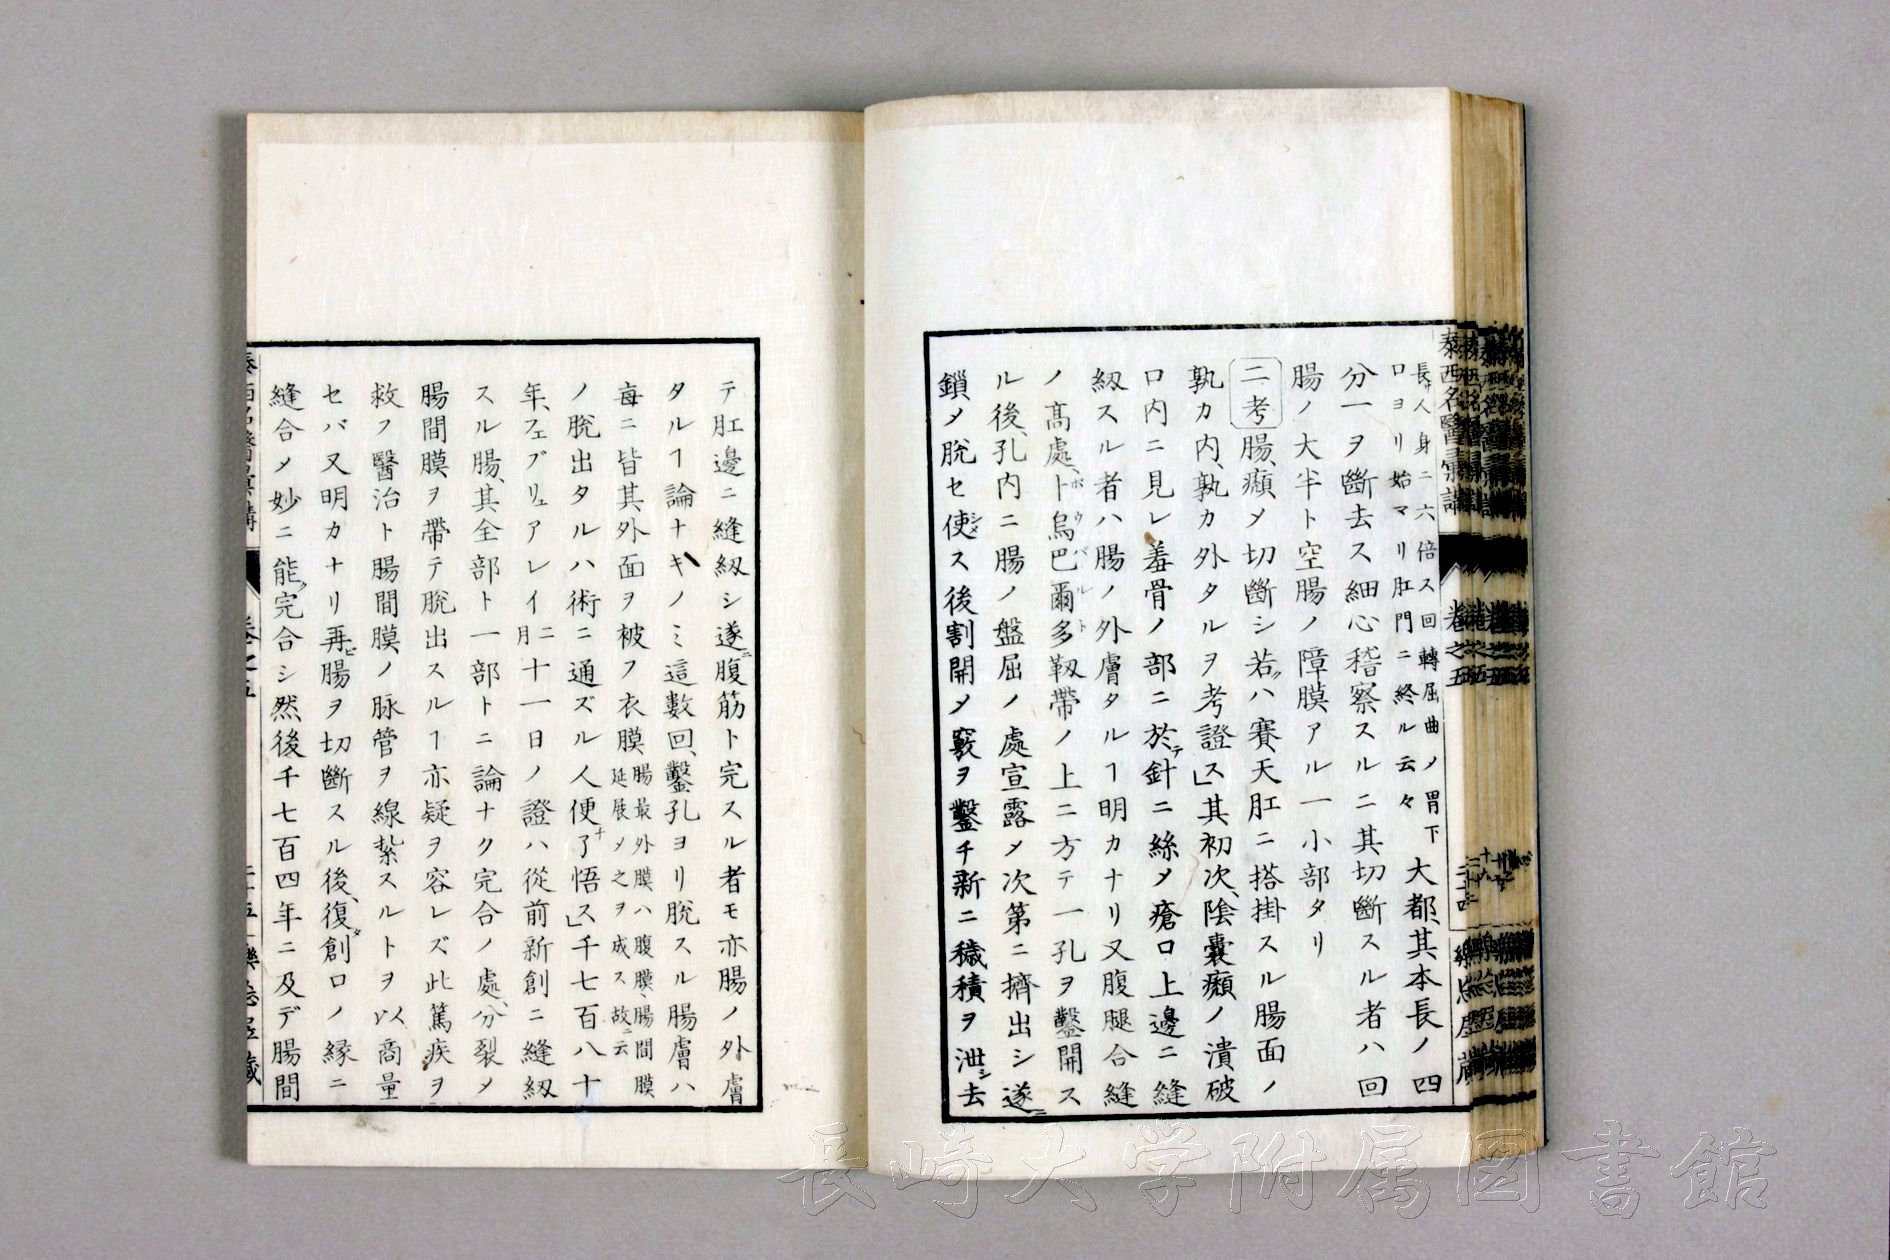 泰西名醫彙講 卷之五 二十四
長サ人身ニ六倍ス回轉屈曲ノ胃下
口ヨリ始マリ肛門ニ終ル云々
大都其本長ノ四
分一ヲ斷去ス細心稽察スルニ其切斷スル者ハ回
腸ノ大半ト空腸ノ障膜アル一小部タリ
二考 腸㿗メ切斷シ若ハ賽天肛ニ搭掛スル腸面ノ
孰カ内孰カ外タルヲ考證ス」其初次陰嚢㿗ノ潰破
口内ニ見レ羞骨ノ部ニ於テ針ニ絲メ瘡口上邊ニ縫
綴スル者ハ腸ノ外膚タルヿ明カナリ又腹腿合縫
ノ髙處ト烏巴爾多靱帶ノ上ニ方テ一孔ヲ鑿開ス
ホウバルト
ル後孔内ニ腸ノ盤屈ノ處宣露メ次第ニ擠出シ遂ニ
鎖メ脱セ使ス後割開メ竅ヲ鑿チ新ニ穢積ヲ泄シ去
テ肛邊ニ縫綴シ遂ニ腹筋ト完スル者モ亦腸ノ外膚
タルヿ論ナキノミ這數回鑿孔ヨリ脱スル腸膚ハ
毎ニ皆其外面ヲ被フ衣膜
腸最外膜ハ腹膜腸間膜
延展メ之ヲ成ス故ニ云
ノ脱出タルハ術ニ通ズル人便ナ了悟ス」千七百八十
年フェブリュアレイ二月十一日ノ證ハ從前新創ニ縫綴
スル腸其全部ト一部トニ論ナク完合ノ處分裂メ
腸間膜ヲ帶テ脱出スルヿ亦疑ヲ容レズ此篤疾ヲ
救フ醫治ト腸間膜ノ脉管ヲ線紮スルトヲ以商量
セバ又明カナリ再ビ腸ヲ切斷スル後復タ創口ノ縁ニ
縫合メ妙ニ能ク完合シ然後千七百四年ニ及デ腸間
泰西名醫彙講 卷之五 二十五
長崎大学附属図書館